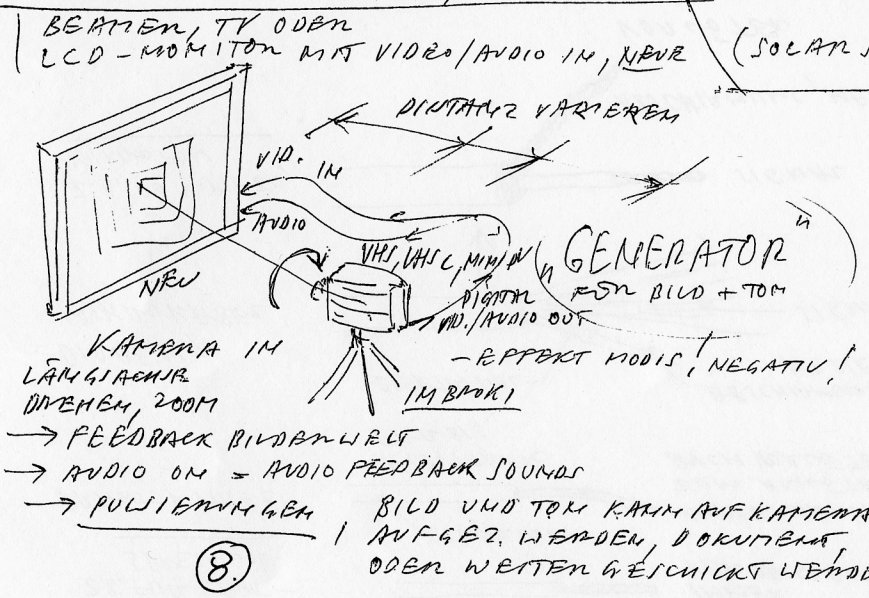 BEAMER, TV ODER
LCD-MONITOR MIT VIDEO/AUDIO IN, NEUE
(SOLAR S
DISTANZ VARIEREN
VID. IN
AUDIO
NEU
VHS, VHS C, MINI DV
DIGITAL
VID./AUDIO OUT
"GENERATOR"
FÜR BILD + TON
- EFFEKT MODIS! NEGATIV!
KAMERA IN
LÄNGSACHSE
DREHEN, ZOOM
IM BROKI
→ FEEDBACK BILDERWELT
→ AUDIO ON = AUDIO FEEDBACK SOUNDS
→ PULSIERUNGEN
! BILD UND TON KANN AUF KAMERA
AUFGEZ. WERDEN, DOKUMENT,
ODER WEITER GESCHICKT WERDE
8.